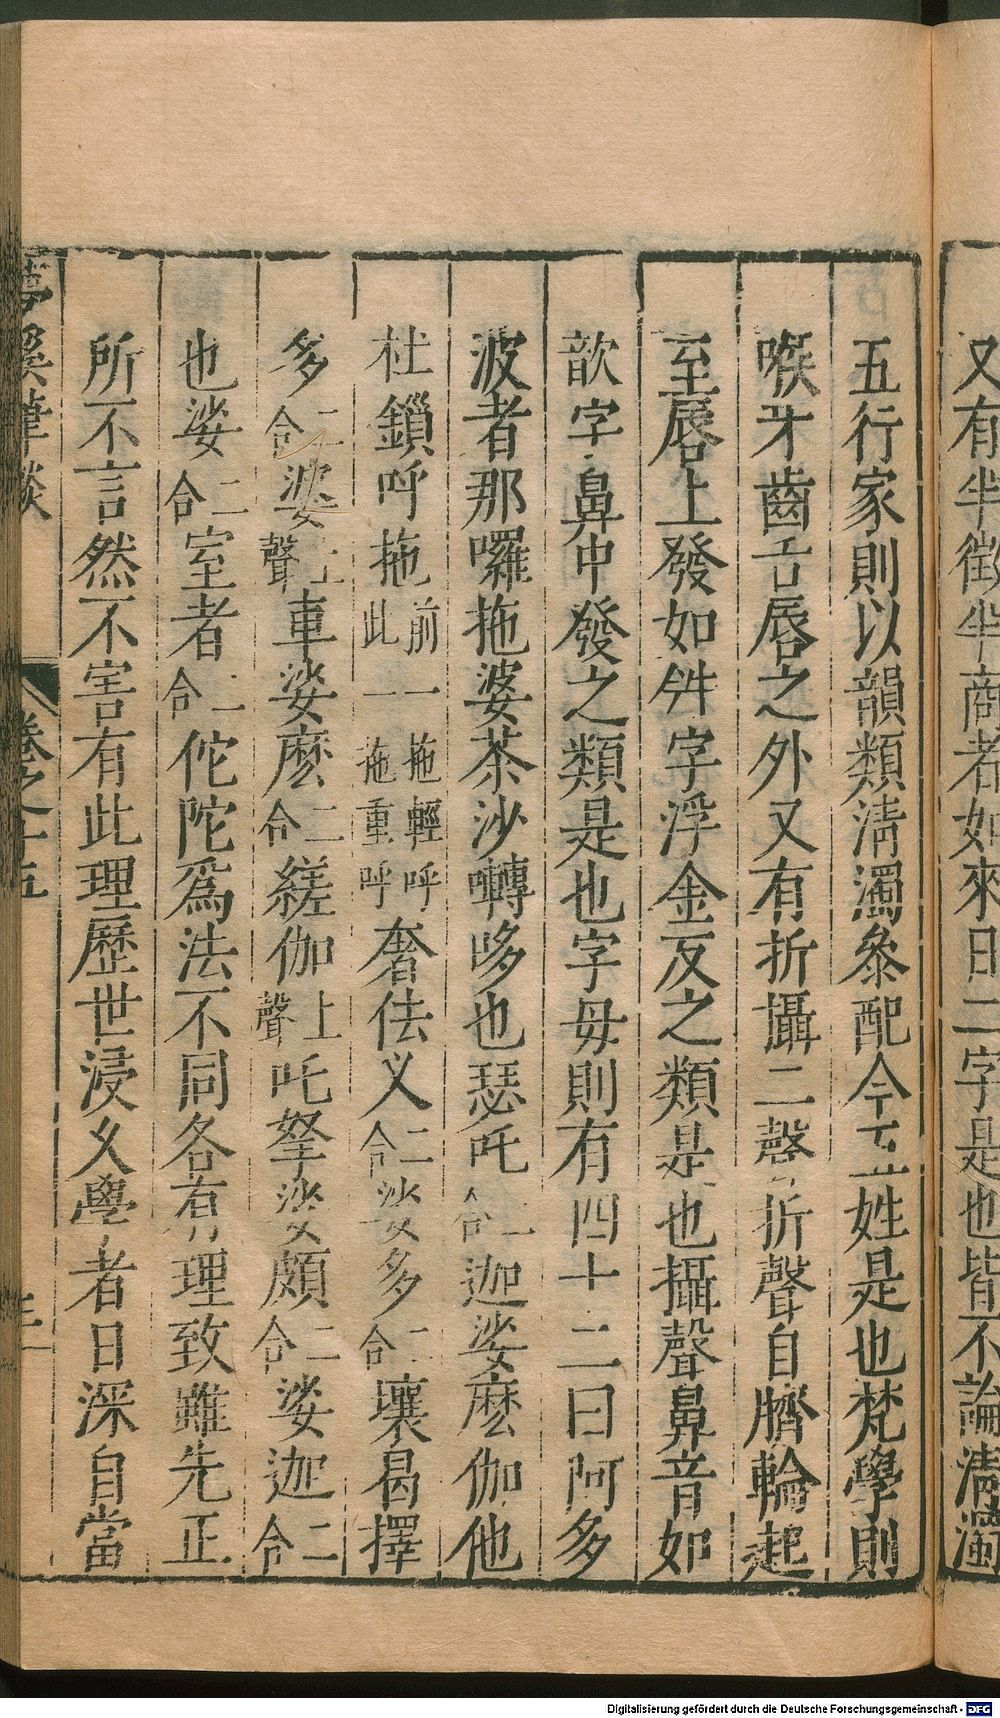 又有半徵半商者如來日二字是也皆不論清濁
五行家則以韻類清濁叅配今五姓是也梵學則
喉牙齒舌唇之外又有折攝二聲折聲自臍輪起
至唇上發如𤙖字浮金反之類是也攝聲鼻音如
歆字鼻中發之類是也字毋則有四十二曰阿多
波者那囉拖婆茶沙嚩哆也瑟吒二合迦娑麽伽他
杜鎖呼拖前一拖輕呼此一拖重呼奢佉义二合娑多二合壤曷擇
多二合婆上聲車娑麽二合縒伽上聲吒拏娑頗二合娑迦二合
也娑二合室者二合佗陀爲法不同各有理致雖先正
所不言然不害有此理歷世浸久學者日深自當
夢溪筆談 卷之十五
Digitalisierung gefördert durch die Deutsche Forschungsgemeinschaft - DFG